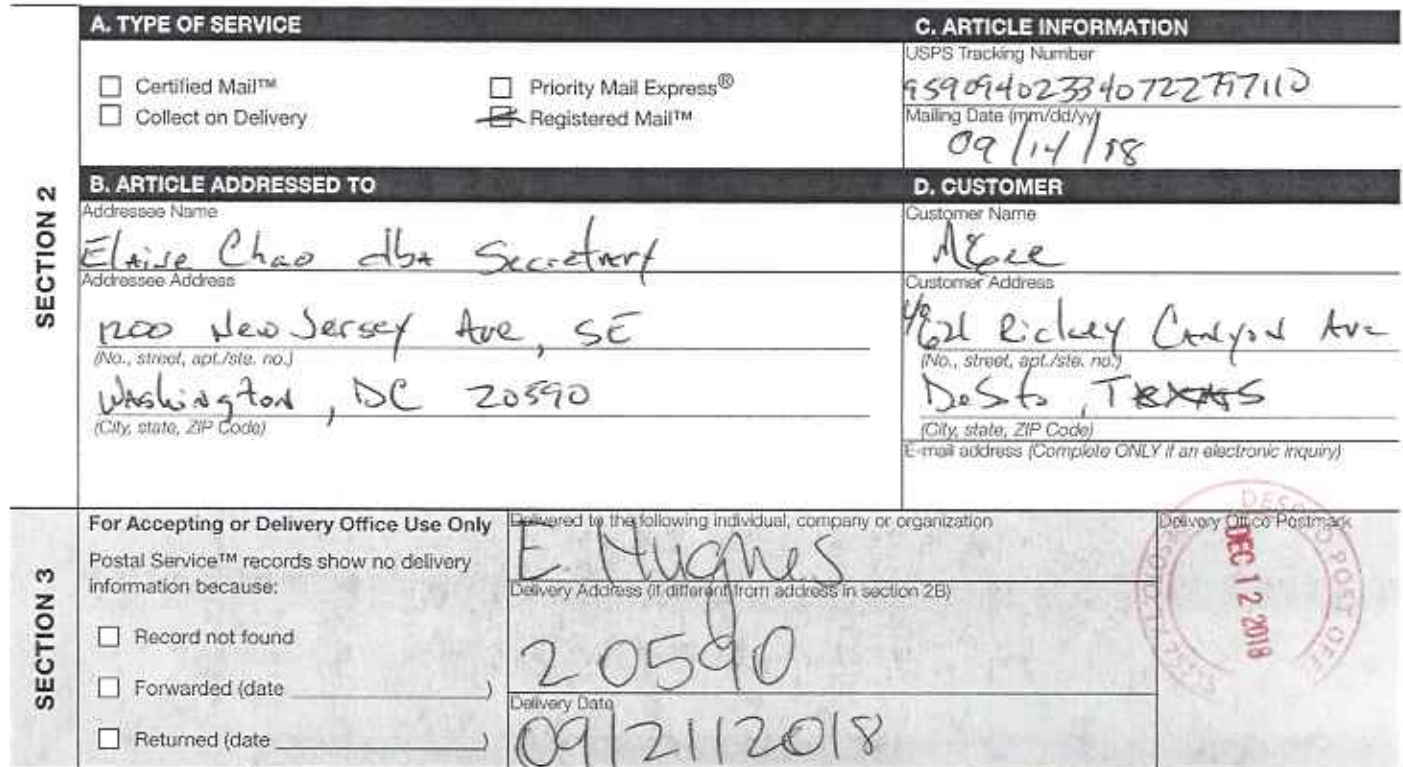 SECTION 2
A. TYPE OF SERVICE
Certified Mail™
Collect on Delivery
Priority Mail Express®
Registered Mail™
C. ARTICLE INFORMATION
USPS Tracking Number
959094023340722797110
Mailing Date (mm/dd/yy)
09/14/18
B. ARTICLE ADDRESSED TO
Addressee Name
Elaine Chao dba Secretary
Addressee Address
1200 New Jersey Ave, SE
(No., street, apt./ste. no.)
Washington, DC 20590
(City, state, ZIP Code)
D. CUSTOMER
Customer Name
Customer Address
621 Rickey Canyon Ave
(No., street, apt./ste. no.)
DeSoto, TEXAS
(City, state, ZIP Code)
E-mail address (Complete ONLY if an electronic inquiry)
SECTION 3
For Accepting or Delivery Office Use Only
Postal Service™ records show no delivery
information because:
Record not found
Forwarded (date )
Returned (date )
Delivered to the following individual, company or organization
E. Hughes
Delivery Address (if different from address in section 2B)
20590
Delivery Date
09/21/2018
Delivery Office Postmark
DESOTO POST OFF
DEC 12 2018